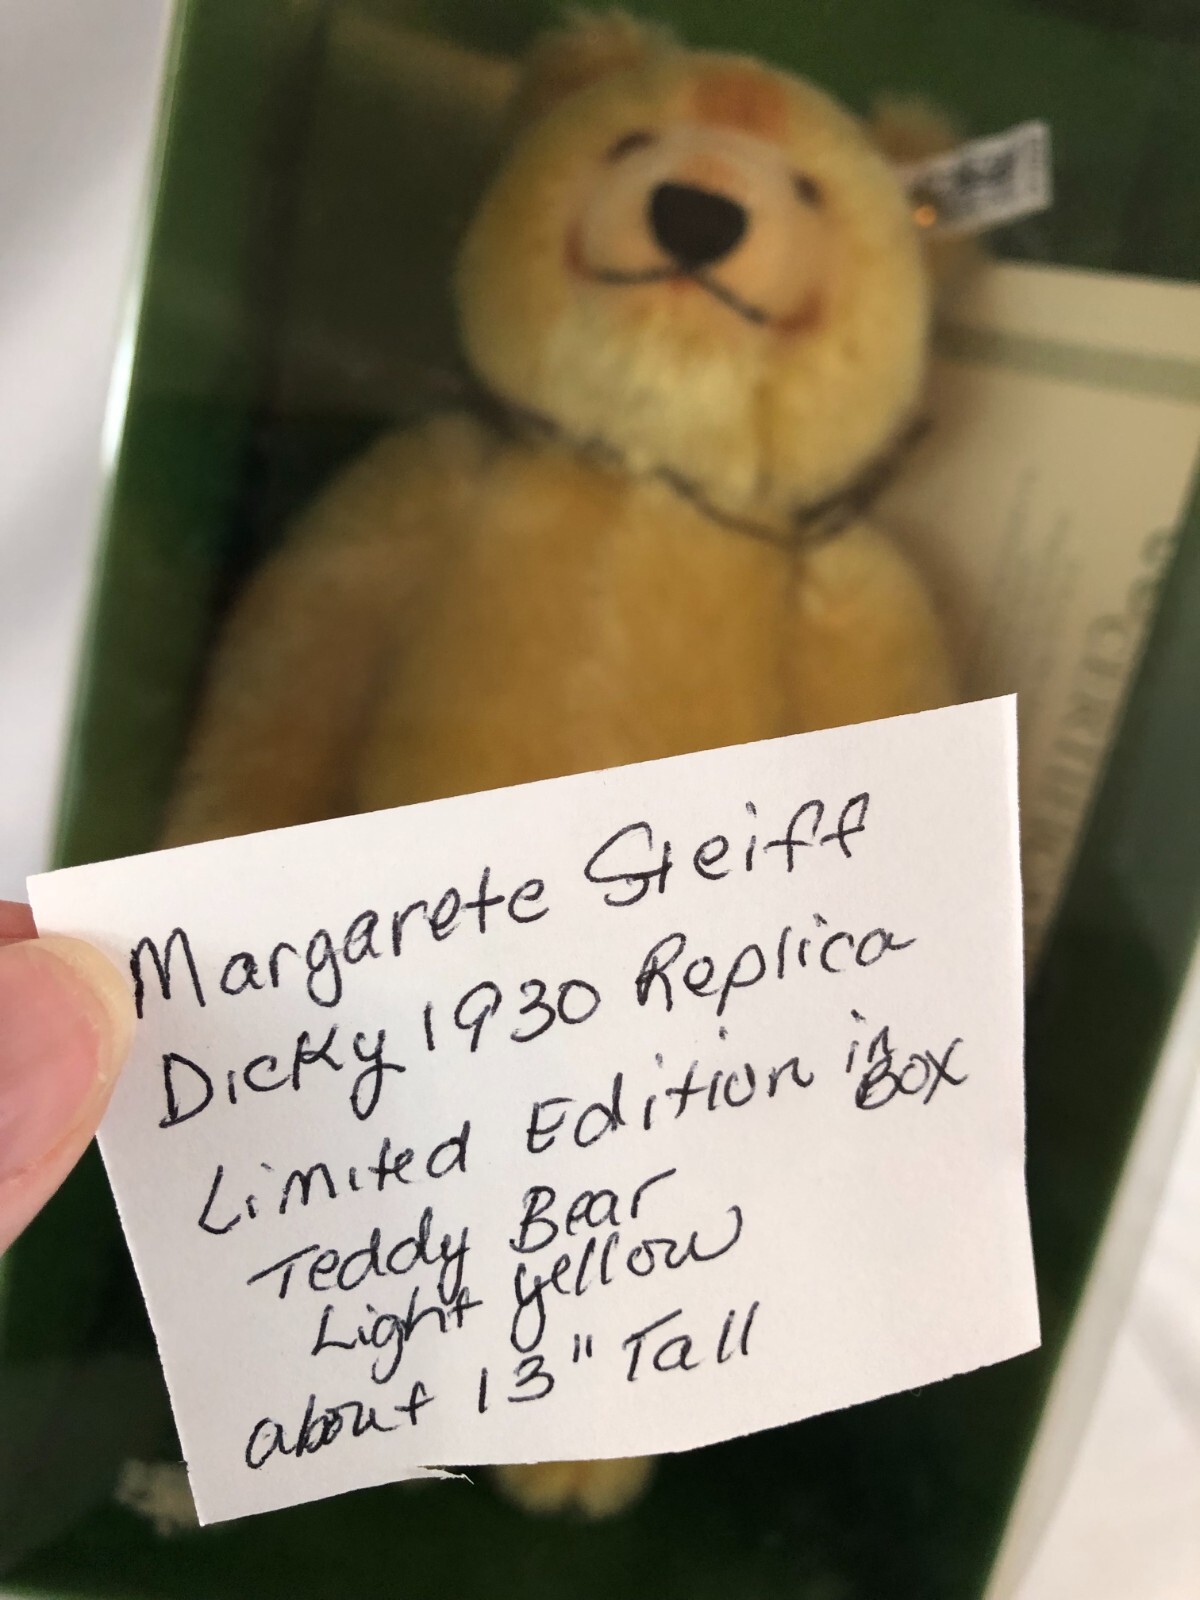 Margarete Steiff
Dicky 1930 Replica
Limited Edition in Box
Teddy Bear
Light yellow
about 13" Tall